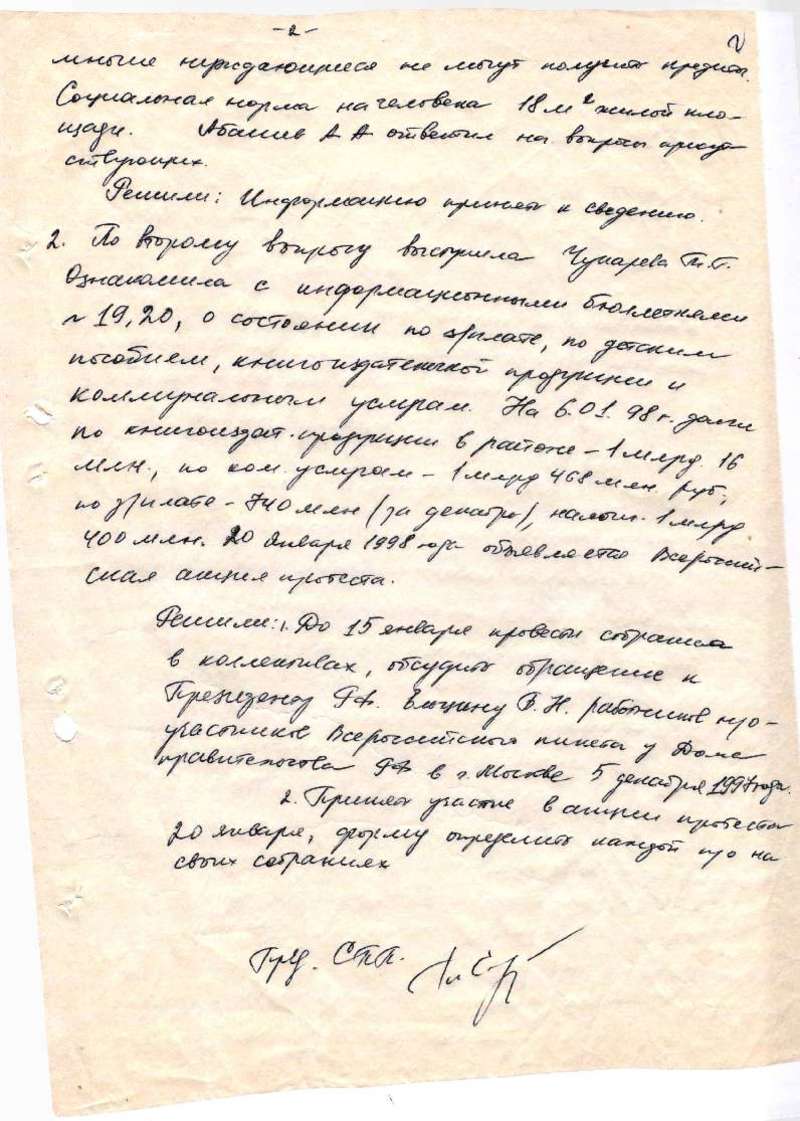 -2-
многие нуждающиеся не могут получить кредит.
Социальная норма на человека 18 м² жилой пло-
щади. Абашев А А ответил на вопросы присут
ствующих.
Решили: Информацию принять к сведению.
2. По второму вопросу выступила Чупарева Т.П.
Ознакомила с информационными бюллетнями
n 19, 20, о состоянии по з/плате, по детским
пособием, книгоиздательской продукции и
коммунальным услугам. На 6.01.98 г. долги
по книгоиздат. продукции в районе – 1 млрд. 16
млн., по ком. услугам – 1 млрд 468 млн. руб.,
по з/плате – 740 млн (за декабрь), налог. 1 млрд
400 млн. 20 января 1998 года объявляется Всероссий-
ская акция протеста.
Решили: 1. До 15 января провести собрания
в коллективах, обсудить обращение к
Президенту РФ. Ельцину Б.Н. работников п/о-
участников Всероссийского пикета у Дома
правительства РФ в г. Москве 5 декабря 1997 года.
2. Принять участие в акции протеста
20 января, форму определить каждой п/о на
своих собраниях
Пред. СТП.